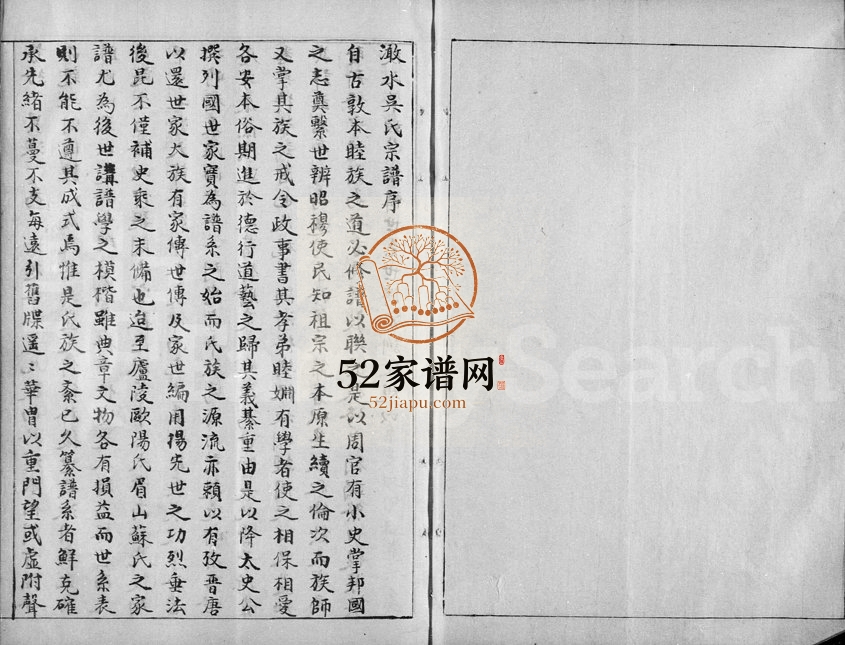 澉水吳氏宗譜序
自古敦本睦族之道必修譜以聯之是以周官有小史掌邦國
之志奠繫世辨昭穆使民知祖宗之本原生續之倫次而族師
又掌其族之戒令政事書其孝弟睦婣有學者使之相保相愛
各安本俗期進於德行道藝之歸其義綦重由是以降太史公
撰列國世家實為譜系之始而氏族之源流亦賴以有攷晉唐
以還世家大族有家傳世傳及家世編用揚先世之功烈垂法
後昆不僅補史乘之未備也迨至廬陵歐陽氏眉山蘇氏之家
譜尤為後世講譜學之模楷雖典章文物各有損益而世系表
則不能不遵其成式焉惟是氏族之紊已久纂譜系者鮮克確
承先緒不蔓不支每遠引舊牒遥遥華冑以重門望或虛附聲
52家谱网
52jiapu.com
Search